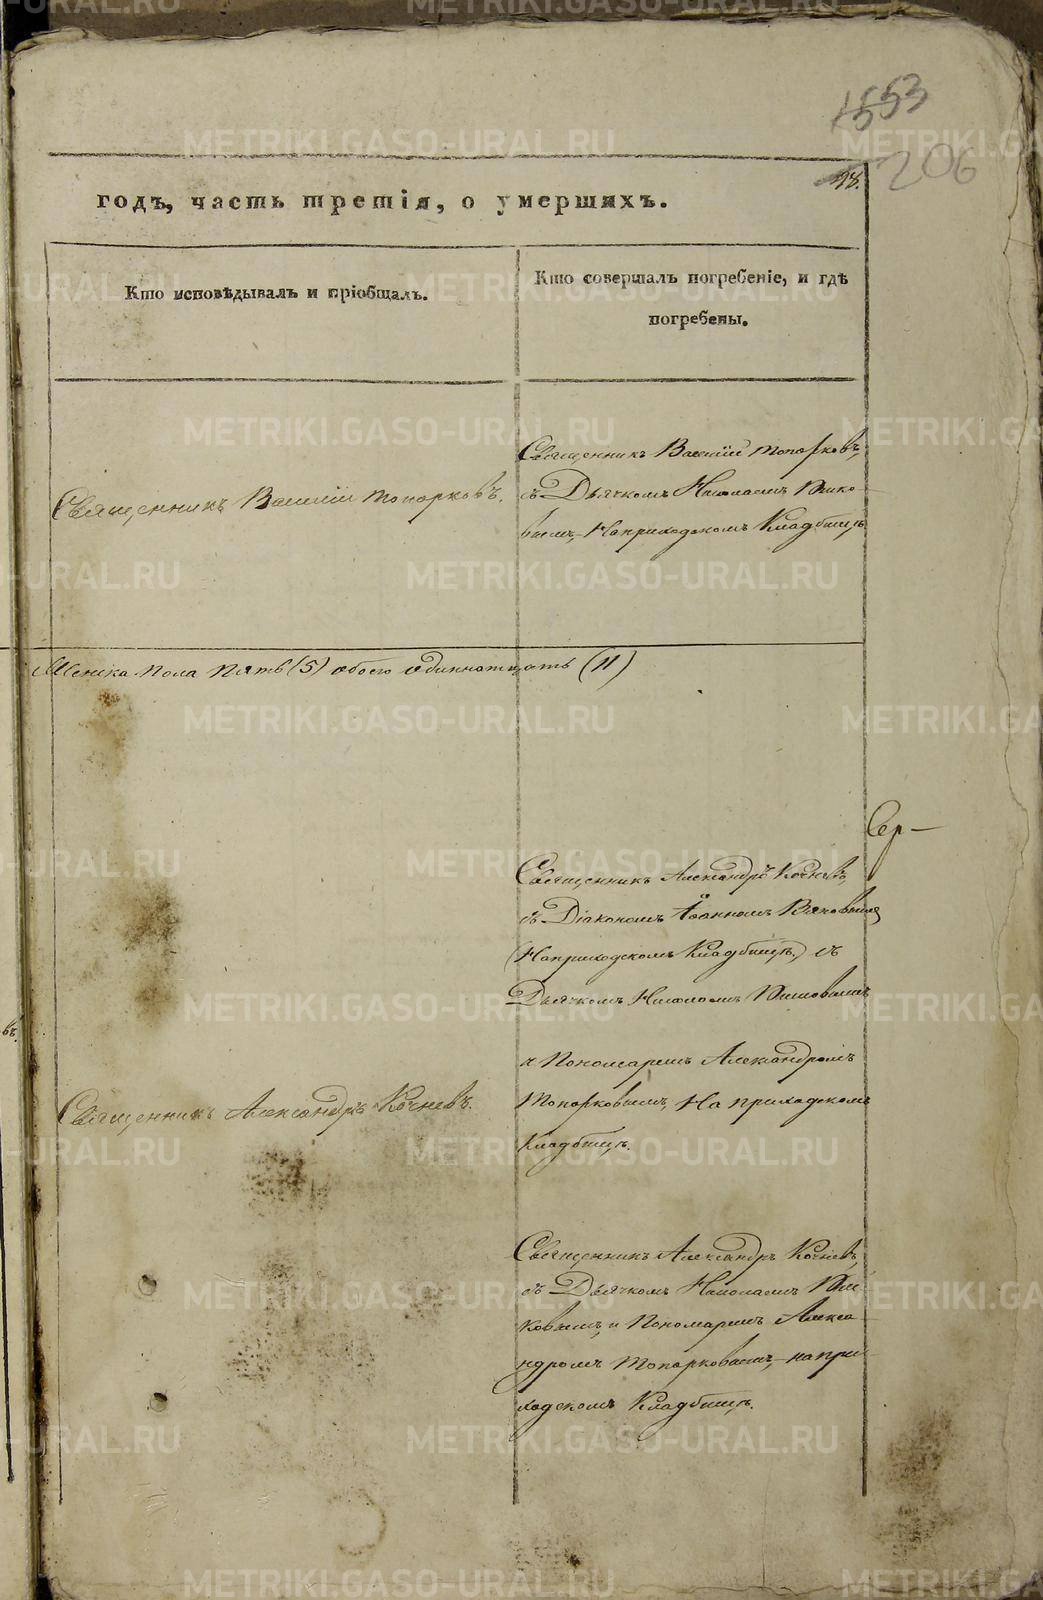 1553
206
98.
годъ, часть третія, о умершихъ.
Кто исповѣдывалъ и пріобщалъ.
Кто совершалъ погребеніе, и гдѣ
погребены.
Священникъ Василій Топорковъ,
съ Дьячкомъ Николаемъ
вымъ, На приходскомъ Кладбищѣ
Священникъ Василій Топорковъ.
Женска пола пять (5) обоего одиннатцать (11)
Сер-
Священникъ Александръ Кочневъ,
съ Діакономъ Іоанномъ
(На приходскомъ Кладбищѣ,) съ
Дьячкомъ Николаемъ
и Пономаремъ Александромъ
Топорковымъ, На приходскомъ
Кладбищѣ.
Священникъ Александръ Кочневъ.
Священникъ Александръ Кочневъ,
съ Дьячкомъ Николаемъ
ковымъ, и Пономаремъ Алекса-
ндромъ Топорковымъ, на при-
ходскомъ Кладбищѣ.
въ.
METRIKI.GASO-URAL.RU